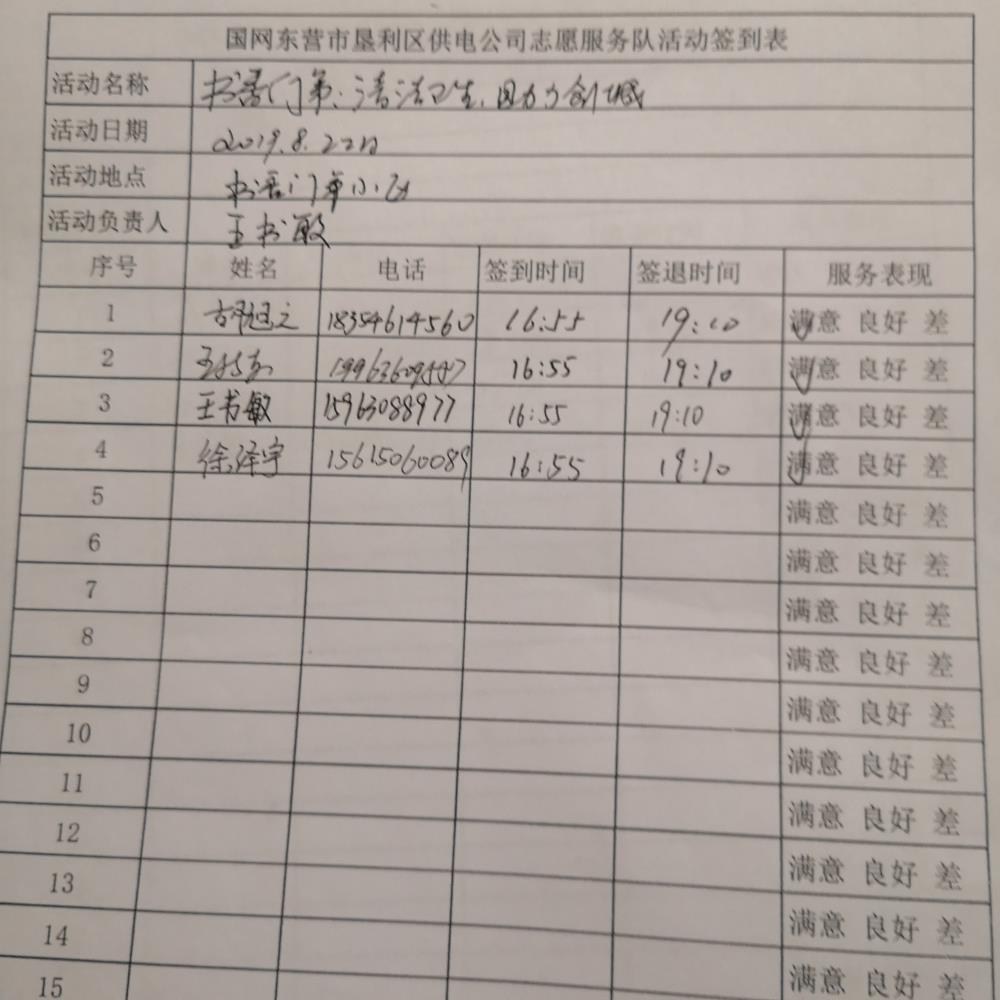 国网东营市垦利区供电公司志愿服务队活动签到表
活动名称 书香门第:清洁卫生,助力创城
活动日期 2019.8.22日
活动地点 书香门第小区
活动负责人 王书敏
序号 姓名 电话 签到时间 签退时间 服务表现
1 18354614560 16:55 19:10 满意 良好 差
2 16:55 19:10 满意 良好 差
3 王书敏 15963088977 16:55 19:10 满意 良好 差
4 徐泽宇 15615060089 16:55 19:10 满意 良好 差
5 满意 良好 差
6 满意 良好 差
7 满意 良好 差
8 满意 良好 差
9 满意 良好 差
10 满意 良好 差
11 满意 良好 差
12 满意 良好 差
13 满意 良好 差
14 满意 良好 差
15 满意 良好 差